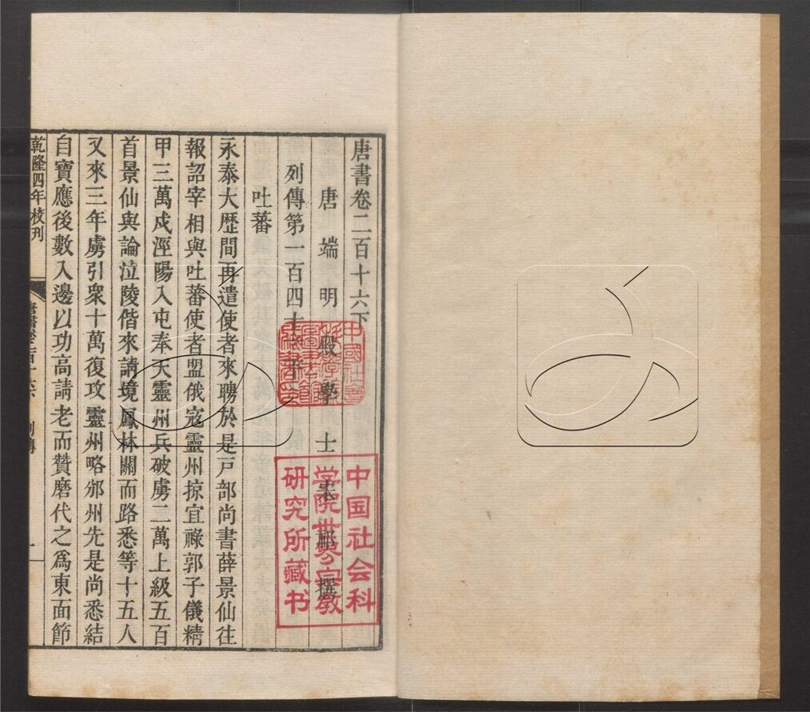 唐書卷二百十六下
唐端明殿學士宋祁撰
列傳第一百四十一下
吐蕃
永泰大歷間再遣使者來聘於是戸部尚書薛景仙往
報詔宰相與吐蕃使者盟俄寇靈州掠宜祿郭子儀精
甲三萬戍涇陽入屯奉天靈州兵破虜二萬上級五百
首景仙與論泣陵偕來請境鳳林關而路悉等十五人
又來三年虜引衆十萬復攻靈州略邠州先是尚悉結
自寶應後數入邊以功高請老而贊磨代之爲東面節
乾隆四年校刊
列傳
一
中国社会科
学院世界宗教
研究所藏书